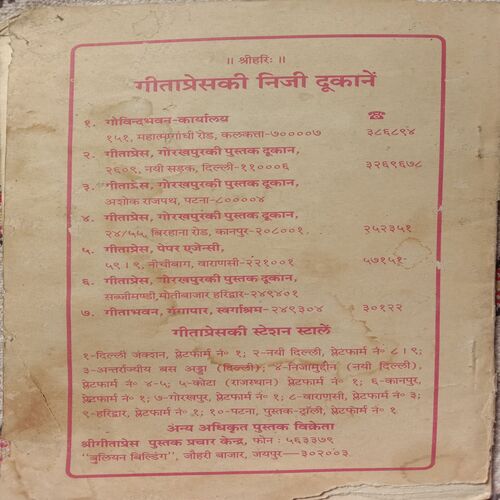 ॥ श्रीहरिः ॥
गीताप्रेसकी निजी दूकानें
१. गोविन्दभवन-कार्यालय ☎
१५१, महात्मागांधी रोड, कलकत्ता-७००००७ ३८६८९४
२. गीताप्रेस, गोरखपुरकी पुस्तक दूकान,
२६०९, नयी सड़क, दिल्ली-११०००६ ३२६९६७८
३. गीताप्रेस, गोरखपुरकी पुस्तक दूकान,
अशोक राजपथ, पटना-८००००४
४. गीताप्रेस, गोरखपुरकी पुस्तक दूकान,
२४/५५, बिरहाना रोड, कानपुर-२०८००१. २५२३५१
५. गीताप्रेस, पेपर एजेन्सी,
५९।९, नीचीबाग, वाराणसी-२२१००१ ५७१५१
६. गीताप्रेस, गोरखपुरकी पुस्तक दूकान,
सब्जीमण्डी,मोतीबाजार हरिद्वार-२४९४०१
७. गीताभवन, गंगापार, स्वर्गाश्रम-२४९३०४ ३०१२२
गीताप्रेसकी स्टेशन स्टालें
१-दिल्ली जंक्शन, प्लेटफार्म नं० १; २-नयी दिल्ली, प्लेटफार्म नं० ८।९;
३-अन्तर्राज्यीय बस अड्डा (दिल्ली); ४-निजामुद्दीन (नयी दिल्ली),
प्लेटफार्म नं० ४-५; ५-कोटा (राजस्थान) प्लेटफार्म नं० १; ६-कानपुर,
प्लेटफार्म नं० १; ७-गोरखपुर, प्लेटफार्म नं० १; ८-वाराणसी, प्लेटफार्म नं० ३;
९-हरिद्वार, प्लेटफार्म नं० १; १०-पटना, पुस्तक-ट्रॉली, प्लेटफार्म नं० १
अन्य अधिकृत पुस्तक विक्रेता
श्रीगीताप्रेस पुस्तक प्रचार केन्द्र, फोन : ५६३३७९
"बुलियन बिल्डिंग", जौहरी बाजार, जयपुर—३०२००३